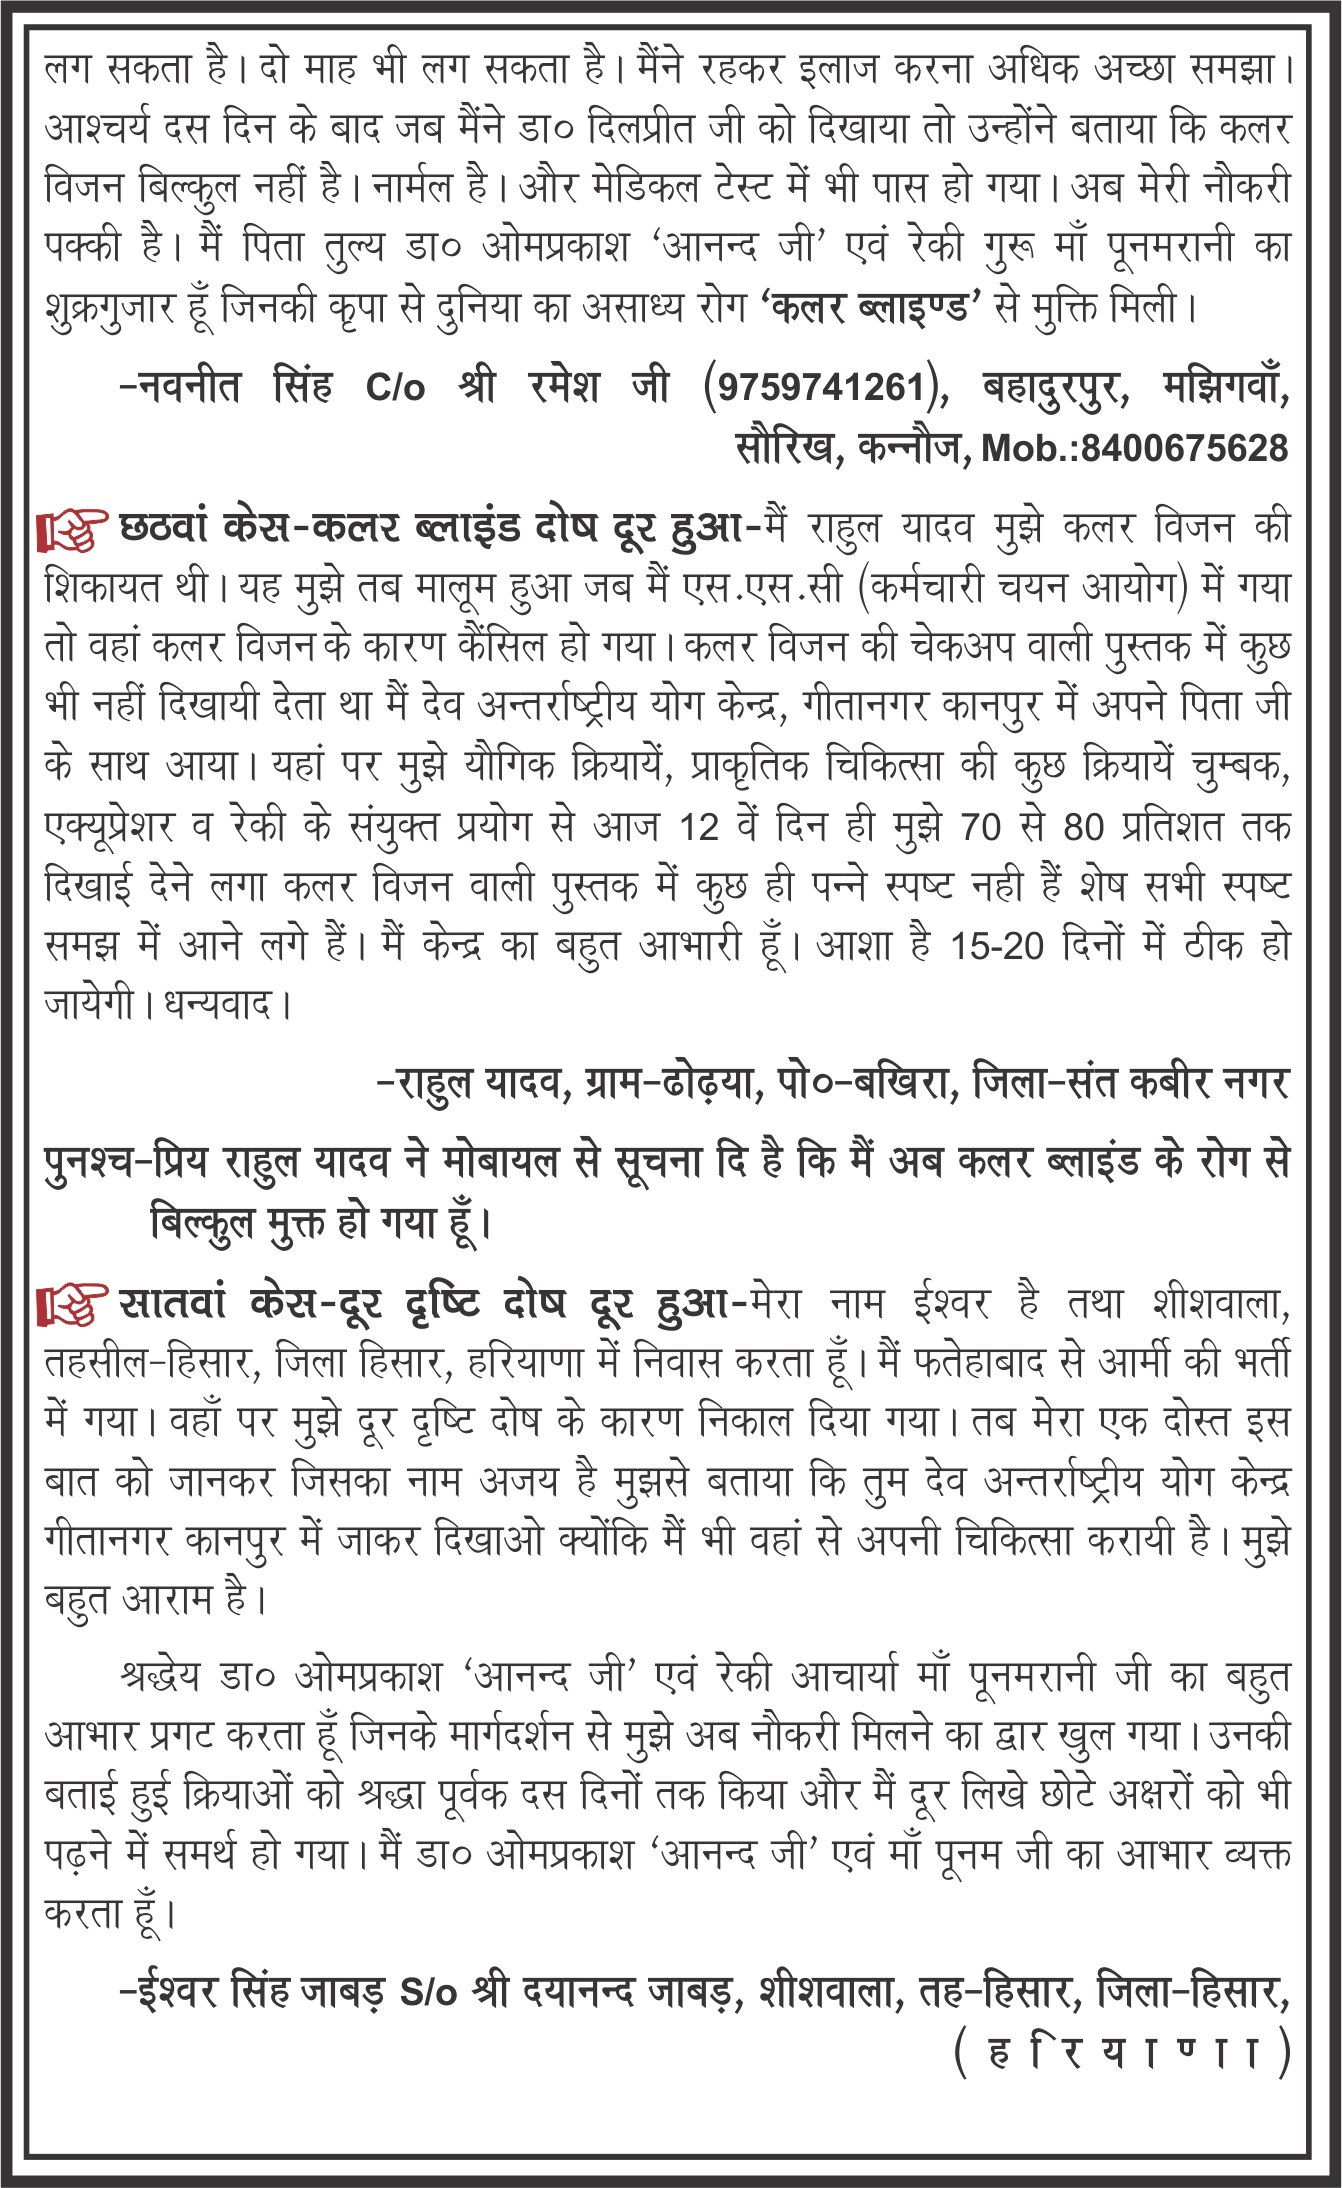 लग सकता है। दो माह भी लग सकता है। मैंने रहकर इलाज करना अधिक अच्छा समझा।
आश्चर्य दस दिन के बाद जब मैंने डा० दिलप्रीत जी को दिखाया तो उन्होंने बताया कि कलर
विजन बिल्कुल नहीं है। नार्मल है। और मेडिकल टेस्ट में भी पास हो गया। अब मेरी नौकरी
पक्की है। मैं पिता तुल्य डा० ओमप्रकाश ‘आनन्द जी’ एवं रेकी गुरू माँ पूनमरानी का
शुक्रगुजार हूँ जिनकी कृपा से दुनिया का असाध्य रोग ‘कलर ब्लाइण्ड’ से मुक्ति मिली।
–नवनीत सिंह C/o श्री रमेश जी (9759741261), बहादुरपुर, मझिगवाँ,
सौरिख, कन्नौज, Mob.:8400675628
छठवां केस-कलर ब्लाइंड दोष दूर हुआ-मैं राहुल यादव मुझे कलर विजन की
शिकायत थी। यह मुझे तब मालूम हुआ जब मैं एस.एस.सी (कर्मचारी चयन आयोग) में गया
तो वहां कलर विजन के कारण कैंसिल हो गया। कलर विजन की चेकअप वाली पुस्तक में कुछ
भी नहीं दिखायी देता था मैं देव अन्तर्राष्ट्रीय योग केन्द्र, गीतानगर कानपुर में अपने पिता जी
के साथ आया। यहां पर मुझे यौगिक क्रियायें, प्राकृतिक चिकित्सा की कुछ क्रियायें चुम्बक,
एक्यूप्रेशर व रेकी के संयुक्त प्रयोग से आज 12 वें दिन ही मुझे 70 से 80 प्रतिशत तक
दिखाई देने लगा कलर विजन वाली पुस्तक में कुछ ही पन्ने स्पष्ट नही हैं शेष सभी स्पष्ट
समझ में आने लगे हैं। मैं केन्द्र का बहुत आभारी हूँ। आशा है 15-20 दिनों में ठीक हो
जायेगी। धन्यवाद।
–राहुल यादव, ग्राम–ढोढ़या, पो०–बखिरा, जिला–संत कबीर नगर
पुनश्च–प्रिय राहुल यादव ने मोबायल से सूचना दि है कि मैं अब कलर ब्लाइंड के रोग से
बिल्कुल मुक्त हो गया हूँ।
सातवां केस-दूर दृष्टि दोष दूर हुआ-मेरा नाम ईश्वर है तथा शीशवाला,
तहसील–हिसार, जिला हिसार, हरियाणा में निवास करता हूँ। मैं फतेहाबाद से आर्मी की भर्ती
में गया। वहाँ पर मुझे दूर दृष्टि दोष के कारण निकाल दिया गया। तब मेरा एक दोस्त इस
बात को जानकर जिसका नाम अजय है मुझसे बताया कि तुम देव अन्तर्राष्ट्रीय योग केन्द्र
गीतानगर कानपुर में जाकर दिखाओ क्योंकि मैं भी वहां से अपनी चिकित्सा करायी है। मुझे
बहुत आराम है।
श्रद्धेय डा० ओमप्रकाश ‘आनन्द जी’ एवं रेकी आचार्या माँ पूनमरानी जी का बहुत
आभार प्रगट करता हूँ जिनके मार्गदर्शन से मुझे अब नौकरी मिलने का द्वार खुल गया। उनकी
बताई हुई क्रियाओं को श्रद्धा पूर्वक दस दिनों तक किया और मैं दूर लिखे छोटे अक्षरों को भी
पढ़ने में समर्थ हो गया। मैं डा० ओमप्रकाश ‘आनन्द जी’ एवं माँ पूनम जी का आभार व्यक्त
करता हूँ।
–ईश्वर सिंह जाबड़ S/o श्री दयानन्द जाबड़, शीशवाला, तह–हिसार, जिला–हिसार,
(हरियाणा)